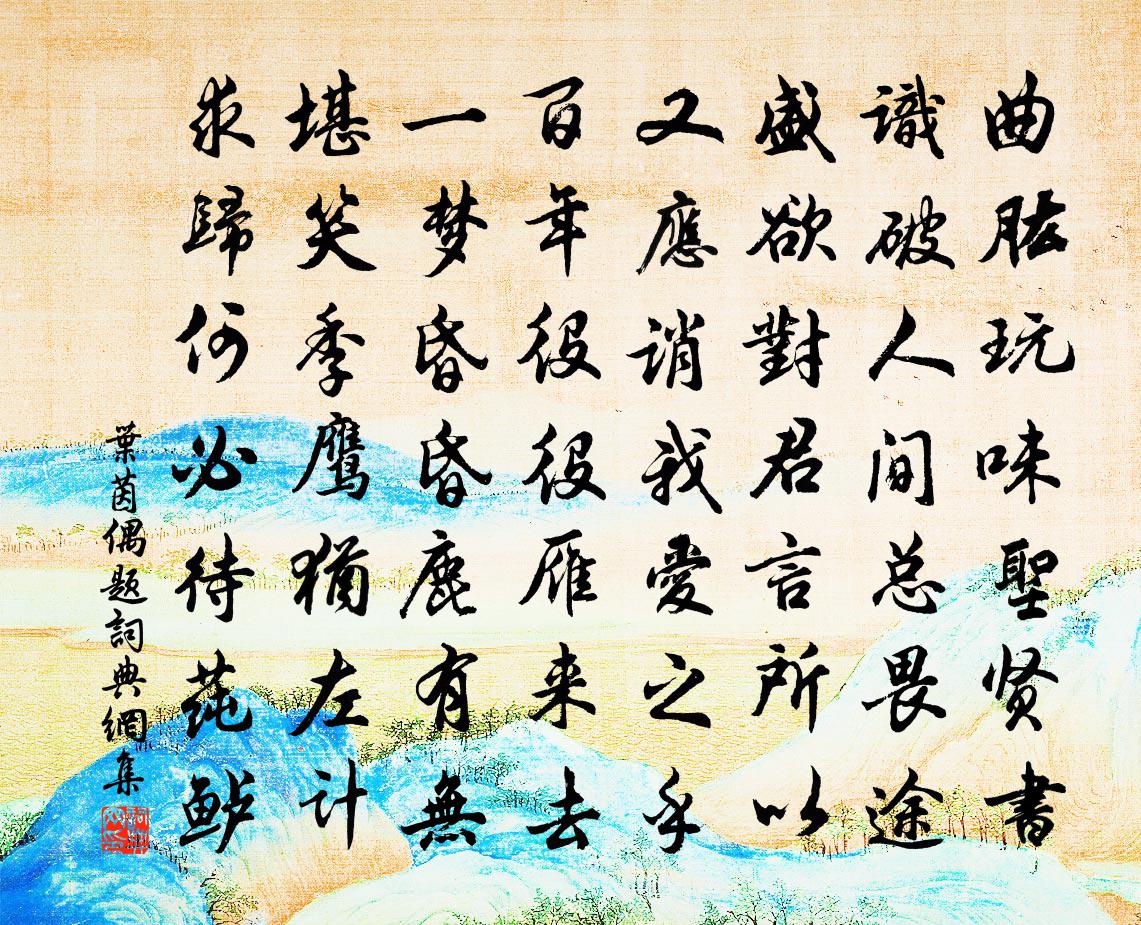 曲肱玩味聖贤書
識破人间总畏途
盛欲對君言所以
又應诮我愛之乎
百年役役雁来去
一梦昏昏鹿有無
堪笑季鹰猶左计
求歸何必待莼鲈
葉茵偶题詞典網集